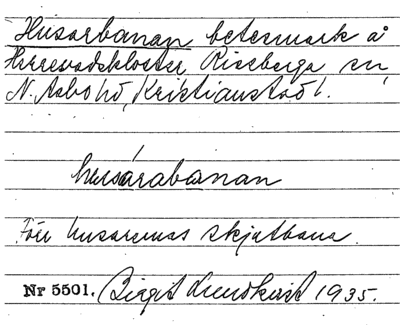 Husarbanan betesmark å
Herrevadskloster, Riseberga sn,
N. Åsbo hd, Kristianstads l.
husárabanan
Förr husarernas skjutbana.
Nr 5501. Birgit Lundkvist 1935.